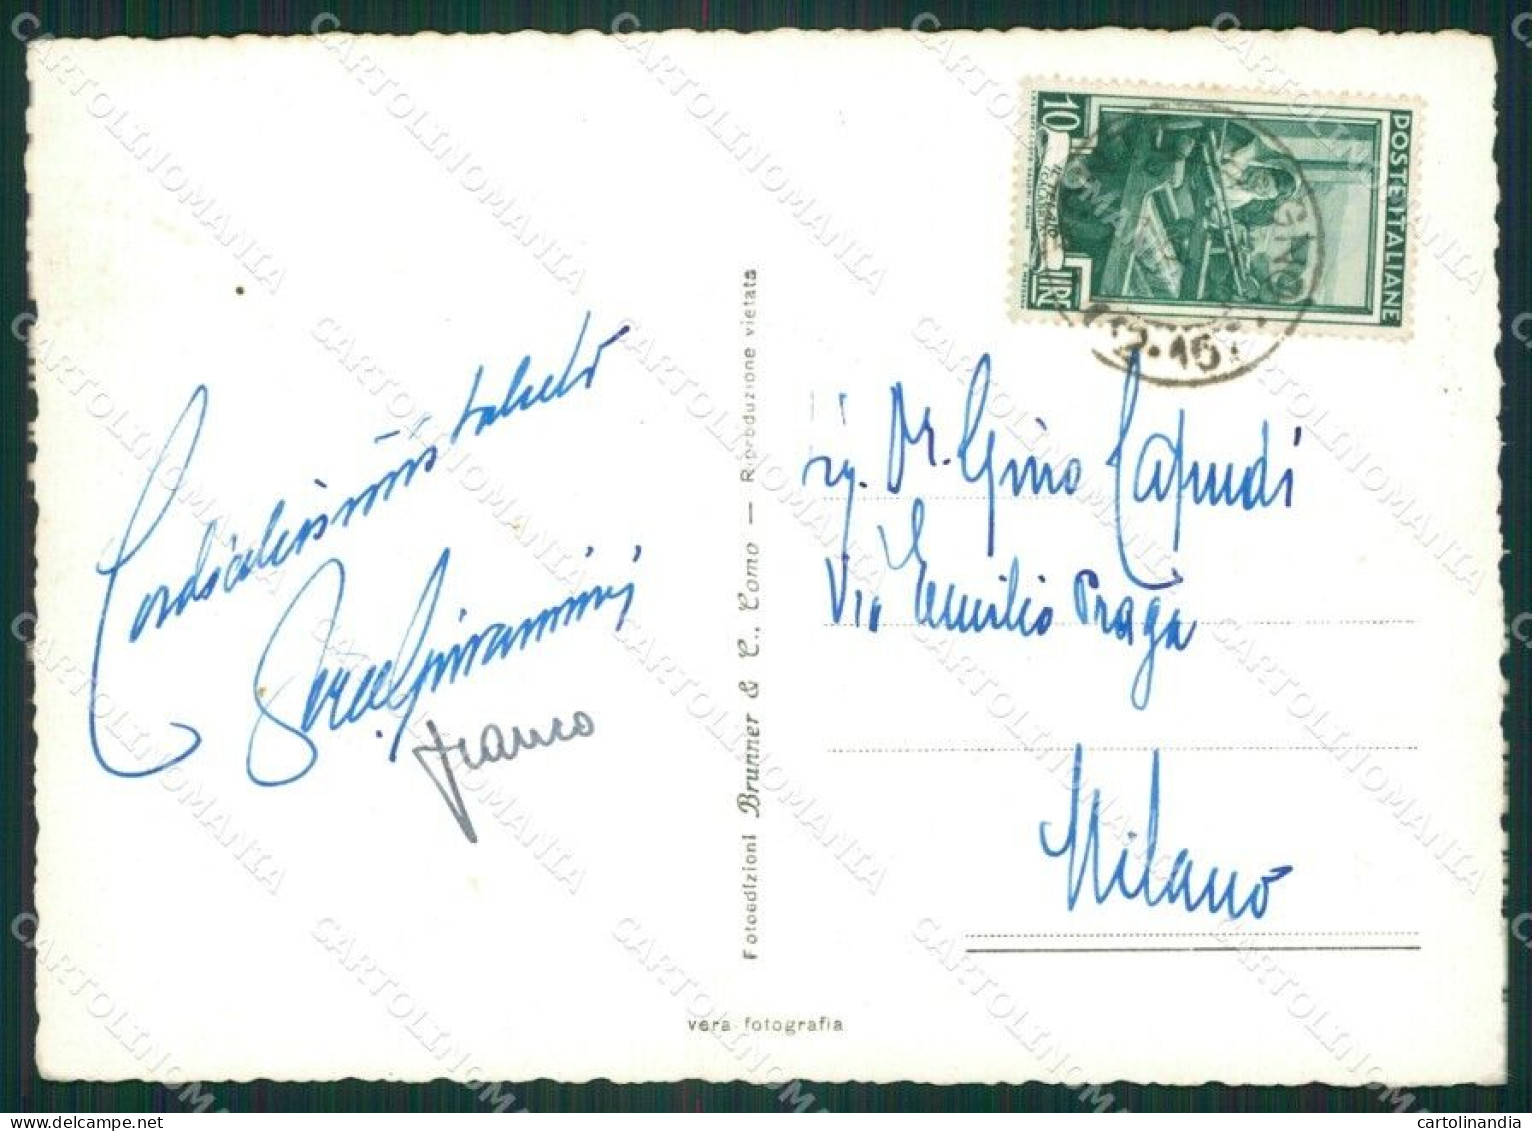 Cordialissimi saluti
Franco
Fotoedizioni Brunner & C., Como — Riproduzione vietata
vera fotografia
POSTE ITALIANE
10
LIRE
12-16
Dr. Gino
Via Emilio Praga
Milano
CARTOLINOMANIA
www.delcampe.net
cartolinandia